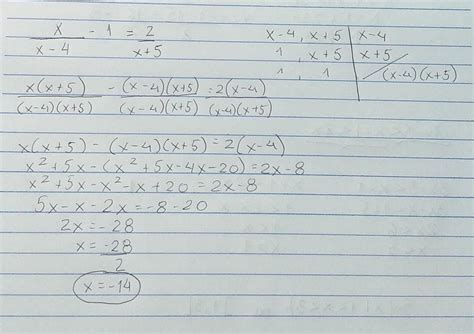 x/(x-4) - 1 = 2/(x+5)
x-4, x+5 | x-4
1, x+5 | x+5
1, 1 | (x-4)(x+5)
x(x+5)/((x-4)(x+5)) - (x-4)(x+5)/((x-4)(x+5)) = 2(x-4)/((x-4)(x+5))
x(x+5) - (x-4)(x+5) = 2(x-4)
x²+5x-(x²+5x-4x-20)=2x-8
x²+5x-x²-x+20=2x-8
5x-x-2x=-8-20
2x=-28
x=-28/2
x=-14